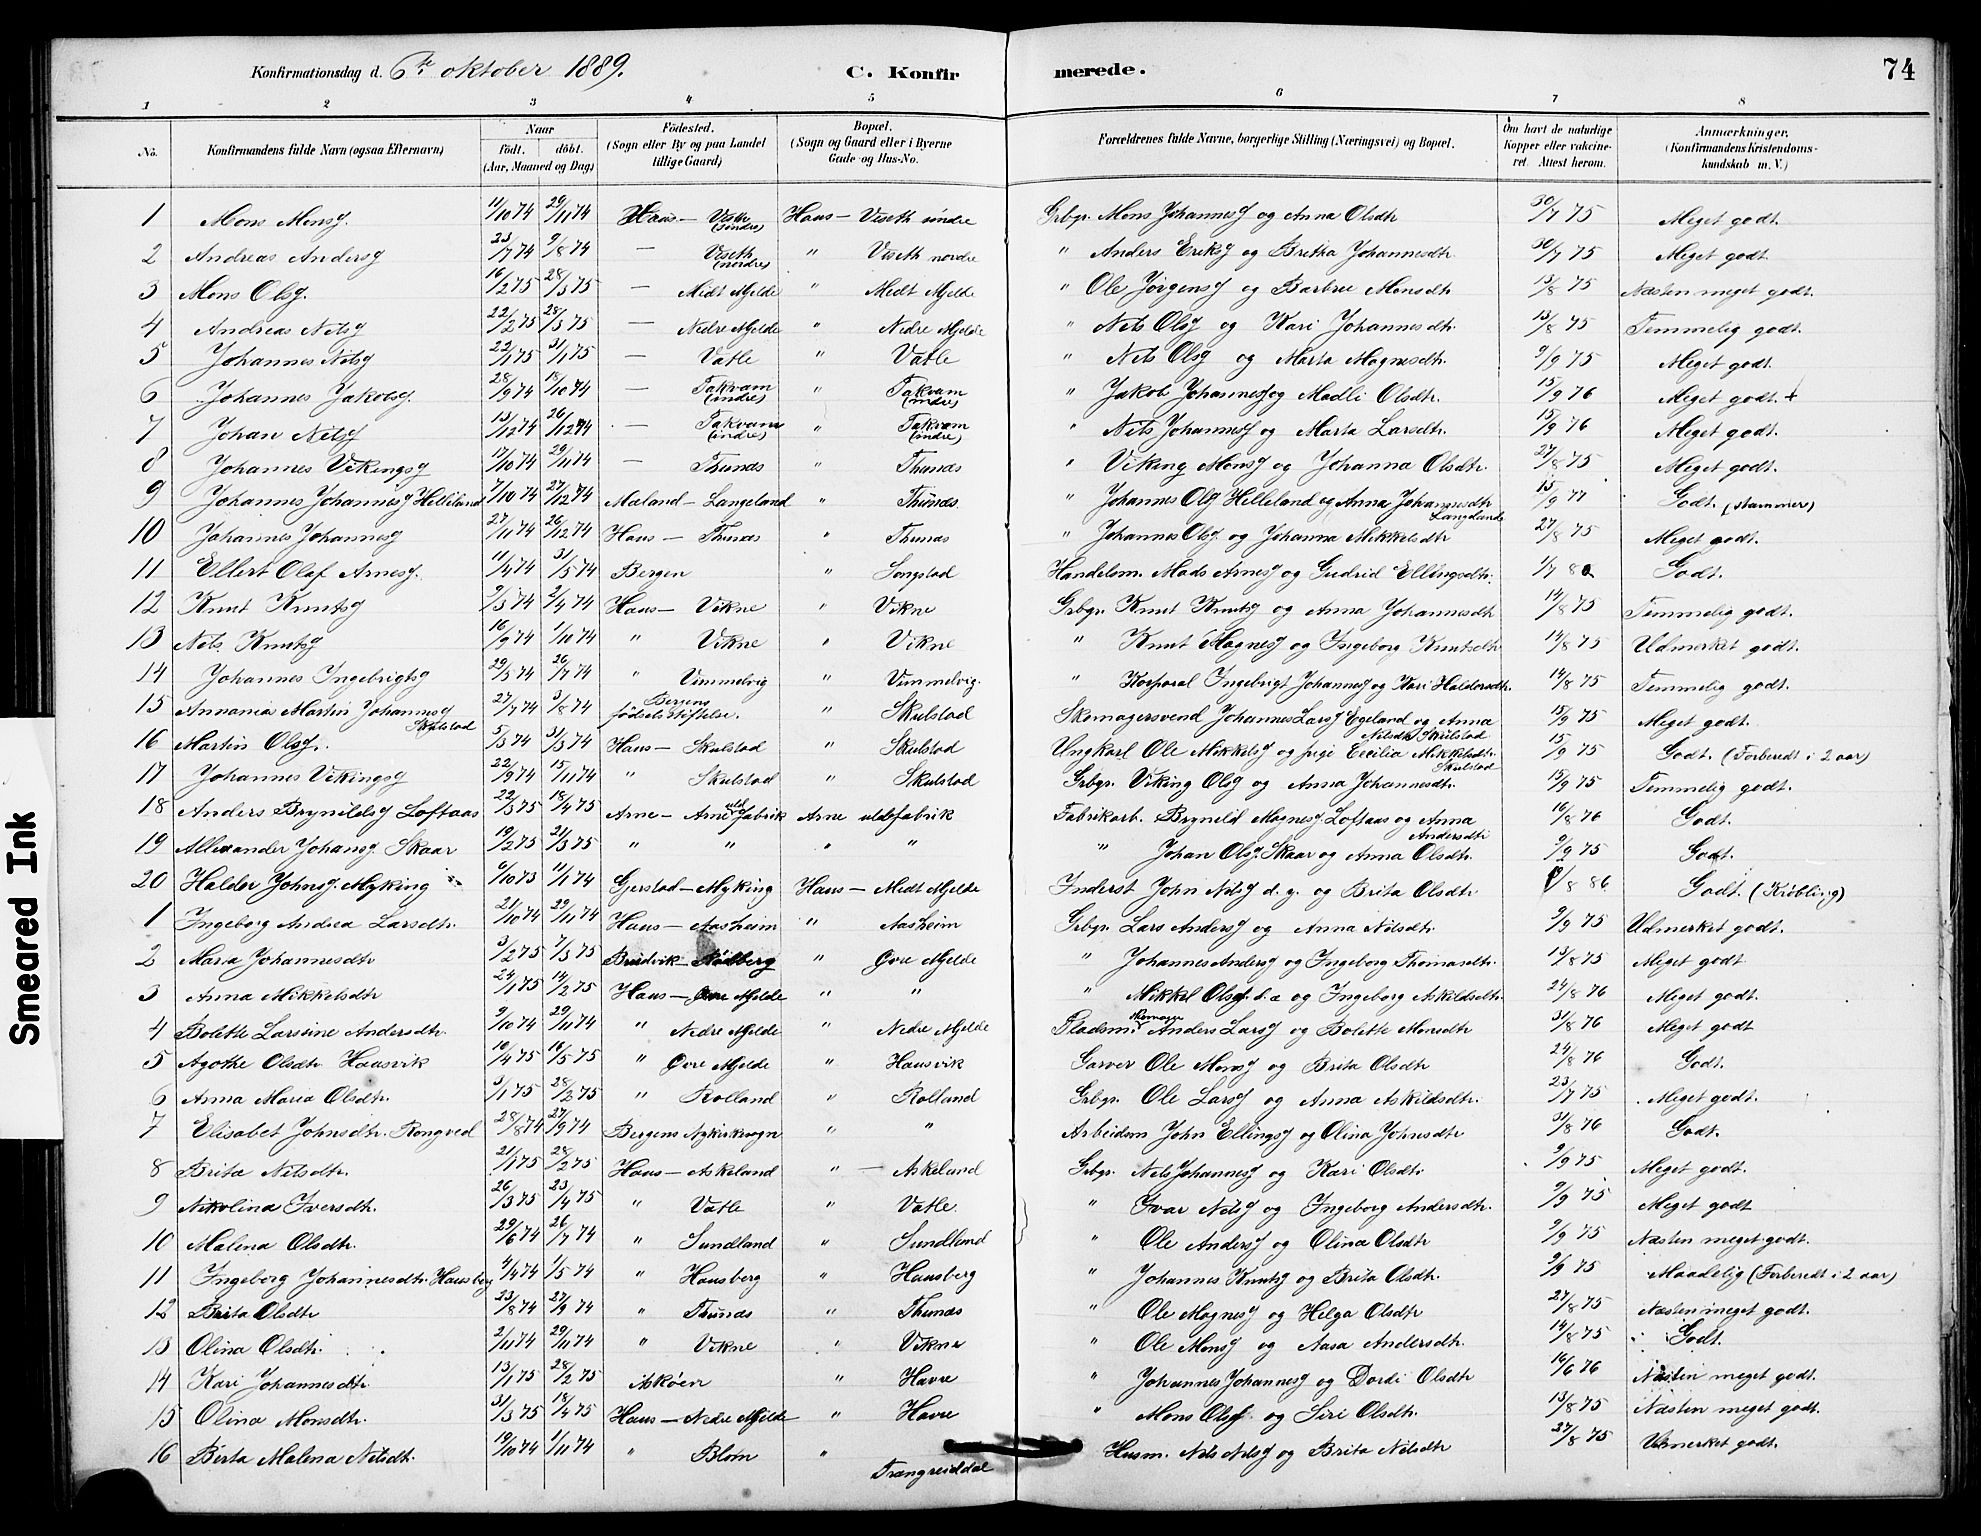 Konfirmationsdag d. 6te oktober 1889. C. Konfirmerede. 74
1 2 3 4 5 6 7 8
No. Konfirmandens fulde Navn (ogsaa Efternavn) Naar födt. döbt. (Aar, Maaned og Dag) Födested. (Sogn eller By og paa Landet tillige Gaard) Bopæl. (Sogn og Gaard eller i Byerne Gade og Hus-No. Forældrenes fulde Navne, borgerlige Stilling (Næringsvei) og Bopæl. Om havt de naturlige Kopper eller vakcineret. Attest herom. Anmærkninger. (Konfirmandens Kristendomskundskab m. V.)
1 Mons Monsş. 11/10 74 29/11 74 Haus — Viseth (söndre) Haus — Viseth söndre Grbgr. Mons Johannesş og Anna Olsdtr 30/7 75 Meget godt.
2 Andreas Andersş 23/7 74 9/8 74 — Viseth (nordre) " Viseth nordre " Anders Eriksş og Britha Johannesdtr 30/7 75 Meget godt.
3 Mons Olsş. 16/2 75 28/3 75 — Midt Mjelde " Midt Mjelde " Ole Jörgensş og Barbru Monsdtr 13/8 75 Næsten meget godt.
4 Andreas Nilsş 22/2 75 28/3 75 — Nedre Mjelde " Nedre Mjelde " Nils Olsş og Kari Johannesdtr. 13/8 75 Temmelig godt.
5 Johannes Nilsş 22/1 75 31/1 75 — Vatle " Vatle " Nils Olsş og Marta Magnesdtr. 9/9 75 Meget godt.
6 Johannes Jakobsş. 28/9 74 18/10 74 — Takvam (indre) " Takvam (indre) " Jakob Johannesş og Madli Olsdtr. 15/9 76 Meget godt. +
7 Johan Nilsş 13/12 74 26/12 74 — Takvam (indre) " Takvam (indre) " Nils Johannesş og Marta Larsdtr. 15/9 76 Meget godt.
8 Johannes Vikingsş 17/10 74 29/11 74 — Thunæs " Thunæs " Viking Monsş og Johanna Olsdtr. 27/8 75 Meget godt.
9 Johannes Johannesş Helleland 7/10 74 27/12 74 Maland — Langeland " Thunæs. " Johannes Olsş Helleland og Anna Johannesdtr Langeland 15/9 77 Godt. (stammer)
10 Johannes Johannesş 27/11 74 26/12 74 Haus — Thunæs " Thunæs " Johannes Olsş og Johanna Mikkelsdtr 27/8 75 Meget godt.
11 Ellert Olaf Arnesş. 11/4 74 31/5 74 Bergen " Songstad Handelsm. Mads Arnesş og Gudrid Ellingsdtr. 1/7 80 Godt.
12 Knut Knutsş 9/3 74 2/4 74 Haus — Vikne " Vikne Grbgr. Knut Knutsş og Anna Johannesdtr 14/8 75 Temmelig godt.
13 Nils Knutsş 16/9 74 1/10 74 " Vikne " Vikne " Knut Magnesş og Ingeborg Knutsdtr 14/8 75 Udmerket godt.
14 Johannes Ingebrigtsş 29/5 74 26/7 74 " Vimmelvig " Vimmelvig. " Korporal Ingebrigt Johannesş og Kari Haldorsdtr. 14/8 75 Temmelig godt.
15 Annania Martin Johannesş Skulstad 27/7 74 3/8 74 Bergens födselsstiftelse. " Skulstad Skomagersvend Johannes Larsş Egeland og Anna Nilsdtr Skulstad 15/9 75 Meget godt.
16 Martin Olsş. 5/3 74 31/3 74 Haus — Skulstad " Skulstad Ungkarl Ole Mikkelsş og pige Cecilia Mikkelsdtr. Skulstad 15/9 75 Godt. (Forberedt i 2 aar)
17 Johannes Vikingsş 22/9 74 15/11 74 " Skulstad " Skulstad Grbgr. Viking Olsş og Anna Johannesdtr. 15/9 75 Temmelig godt.
18 Anders Brynildsş Loftaas 22/3 75 18/4 75 Arne — Arne uldfabrik Arne uldefabrik Fabrikarb. Brynild Magnesş Loftaas og Anna Andersdtr 16/8 76 Godt.
19 Allexander Johansş. Skaar 19/2 75 21/3 75 " " " " " Johan Olsş. Skaar og Anna Olsdtr. 9/9 75 Godt.
20 Haldor Johnsş. Myking 6/10 73 1/1 74 Gjerstad — Myking Haus — Midt Mjelde Inderst John Nilsş d. y. og Brita Olsdtr 8 86 Godt. (Krøbling)
1 Ingeborg Andrea Larsdtr. 21/10 74 29/11 74 Haus — Aasheim " Aasheim Grbgr. Lars Andersş og Anna Nilsdtr 9/9 75 Udmerket godt.
2 Maria Johannesdtr 3/2 75 7/3 75 Bruvik — Rödberg " Øvre Mjelde " Johannes Andersş og Ingeborg Thomasdtr. 13/8 75 Meget godt
3 Anna Mikkelsdtr 24/1 75 14/2 75 Haus — Øvre Mjelde " " " Mikkel Olsş d. e og Ingeborg Askildsdtr. 24/8 76 Meget godt.
4 Bolette Larsine Andersdtr. 9/10 74 29/11 74 " Nedre Mjelde " Nedre Mjelde Pladsm. Anders Larsş og Bolette Monsdtr 31/8 76 Meget godt
5 Agothe Olsdtr. Hausvik 10/4 75 16/5 75 " Øvre Mjelde " Hausvik Garver Ole Monsş og Brita Olsdtr 24/8 76 Godt.
6 Anna Maria Olsdtr. 3/1 75 28/2 75 " Rolland " Rolland Grbgr. Ole Larsş og Anna Askildsdtr. 23/7 75 Meget godt.
7 Elisabet Johnsdtr. Rongved 28/8 74 27/9 74 Bergens Nykirkesogn " " Arbeidsm John Ellingsş og Olina Johnsdtr 31/8 76 Godt.
8 Brita Nilsdtr. 21/1 75 28/2 75 Haus — Askeland " — Askeland Grbgr. Nils Johannesş og Kari Olsdtr 9/9 75 Meget godt.
9 Nikolina Iversdtr. 26/3 75 23/4 75 " Vatle " Vatle. " Ivar Nilsş og Ingeborg Andersdtr. 9/9 75 Meget godt
10 Malena Olsdtr. 29/6 74 26/7 74 " Sundland " Sundland " Ole Andersş og Olina Olsdtr 9/9 75 Næsten meget godt.
11 Ingeborg Johannesdtr. Hausberg 4/4 74 1/5 74 " Hausberg " Hausberg " Johannes Knutsş og Brita Olsdtr. 9/9 75 Maadelig (Forberedt i 2 aar)
12 Brita Olsdtr 23/8 74 27/9 74 " Thunæs " Thunæs " Ole Magnesş og Helga Olsdtr 27/8 75 Næsten meget godt.
13 Olina Olsdtr. 2/11 74 29/11 74 " Vikne " Vikne " Ole Monsş og Aasa Andersdtr. 14/8 75 Godt.
14 Kari Johannesdtr. 13/1 75 28/2 75 Askøen " Havre " Johannes Johannesş og Dordi Olsdtr 16/6 76 Næsten meget godt.
15 Olina Monsdtr. 31/3 75 18/4 75 Haus — Nedre Mjelde " Havre " Mons Olsş. og Siri Olsdtr. 13/8 75 Næsten meget godt.
16 Berta Malena Nilsdtr. 19/10 74 1/11 74 " Blom " Trangreiddal Husm. Nils Nilsş og Brita Nilsdtr 27/8 75 Udmerket godt.
Smeared Ink